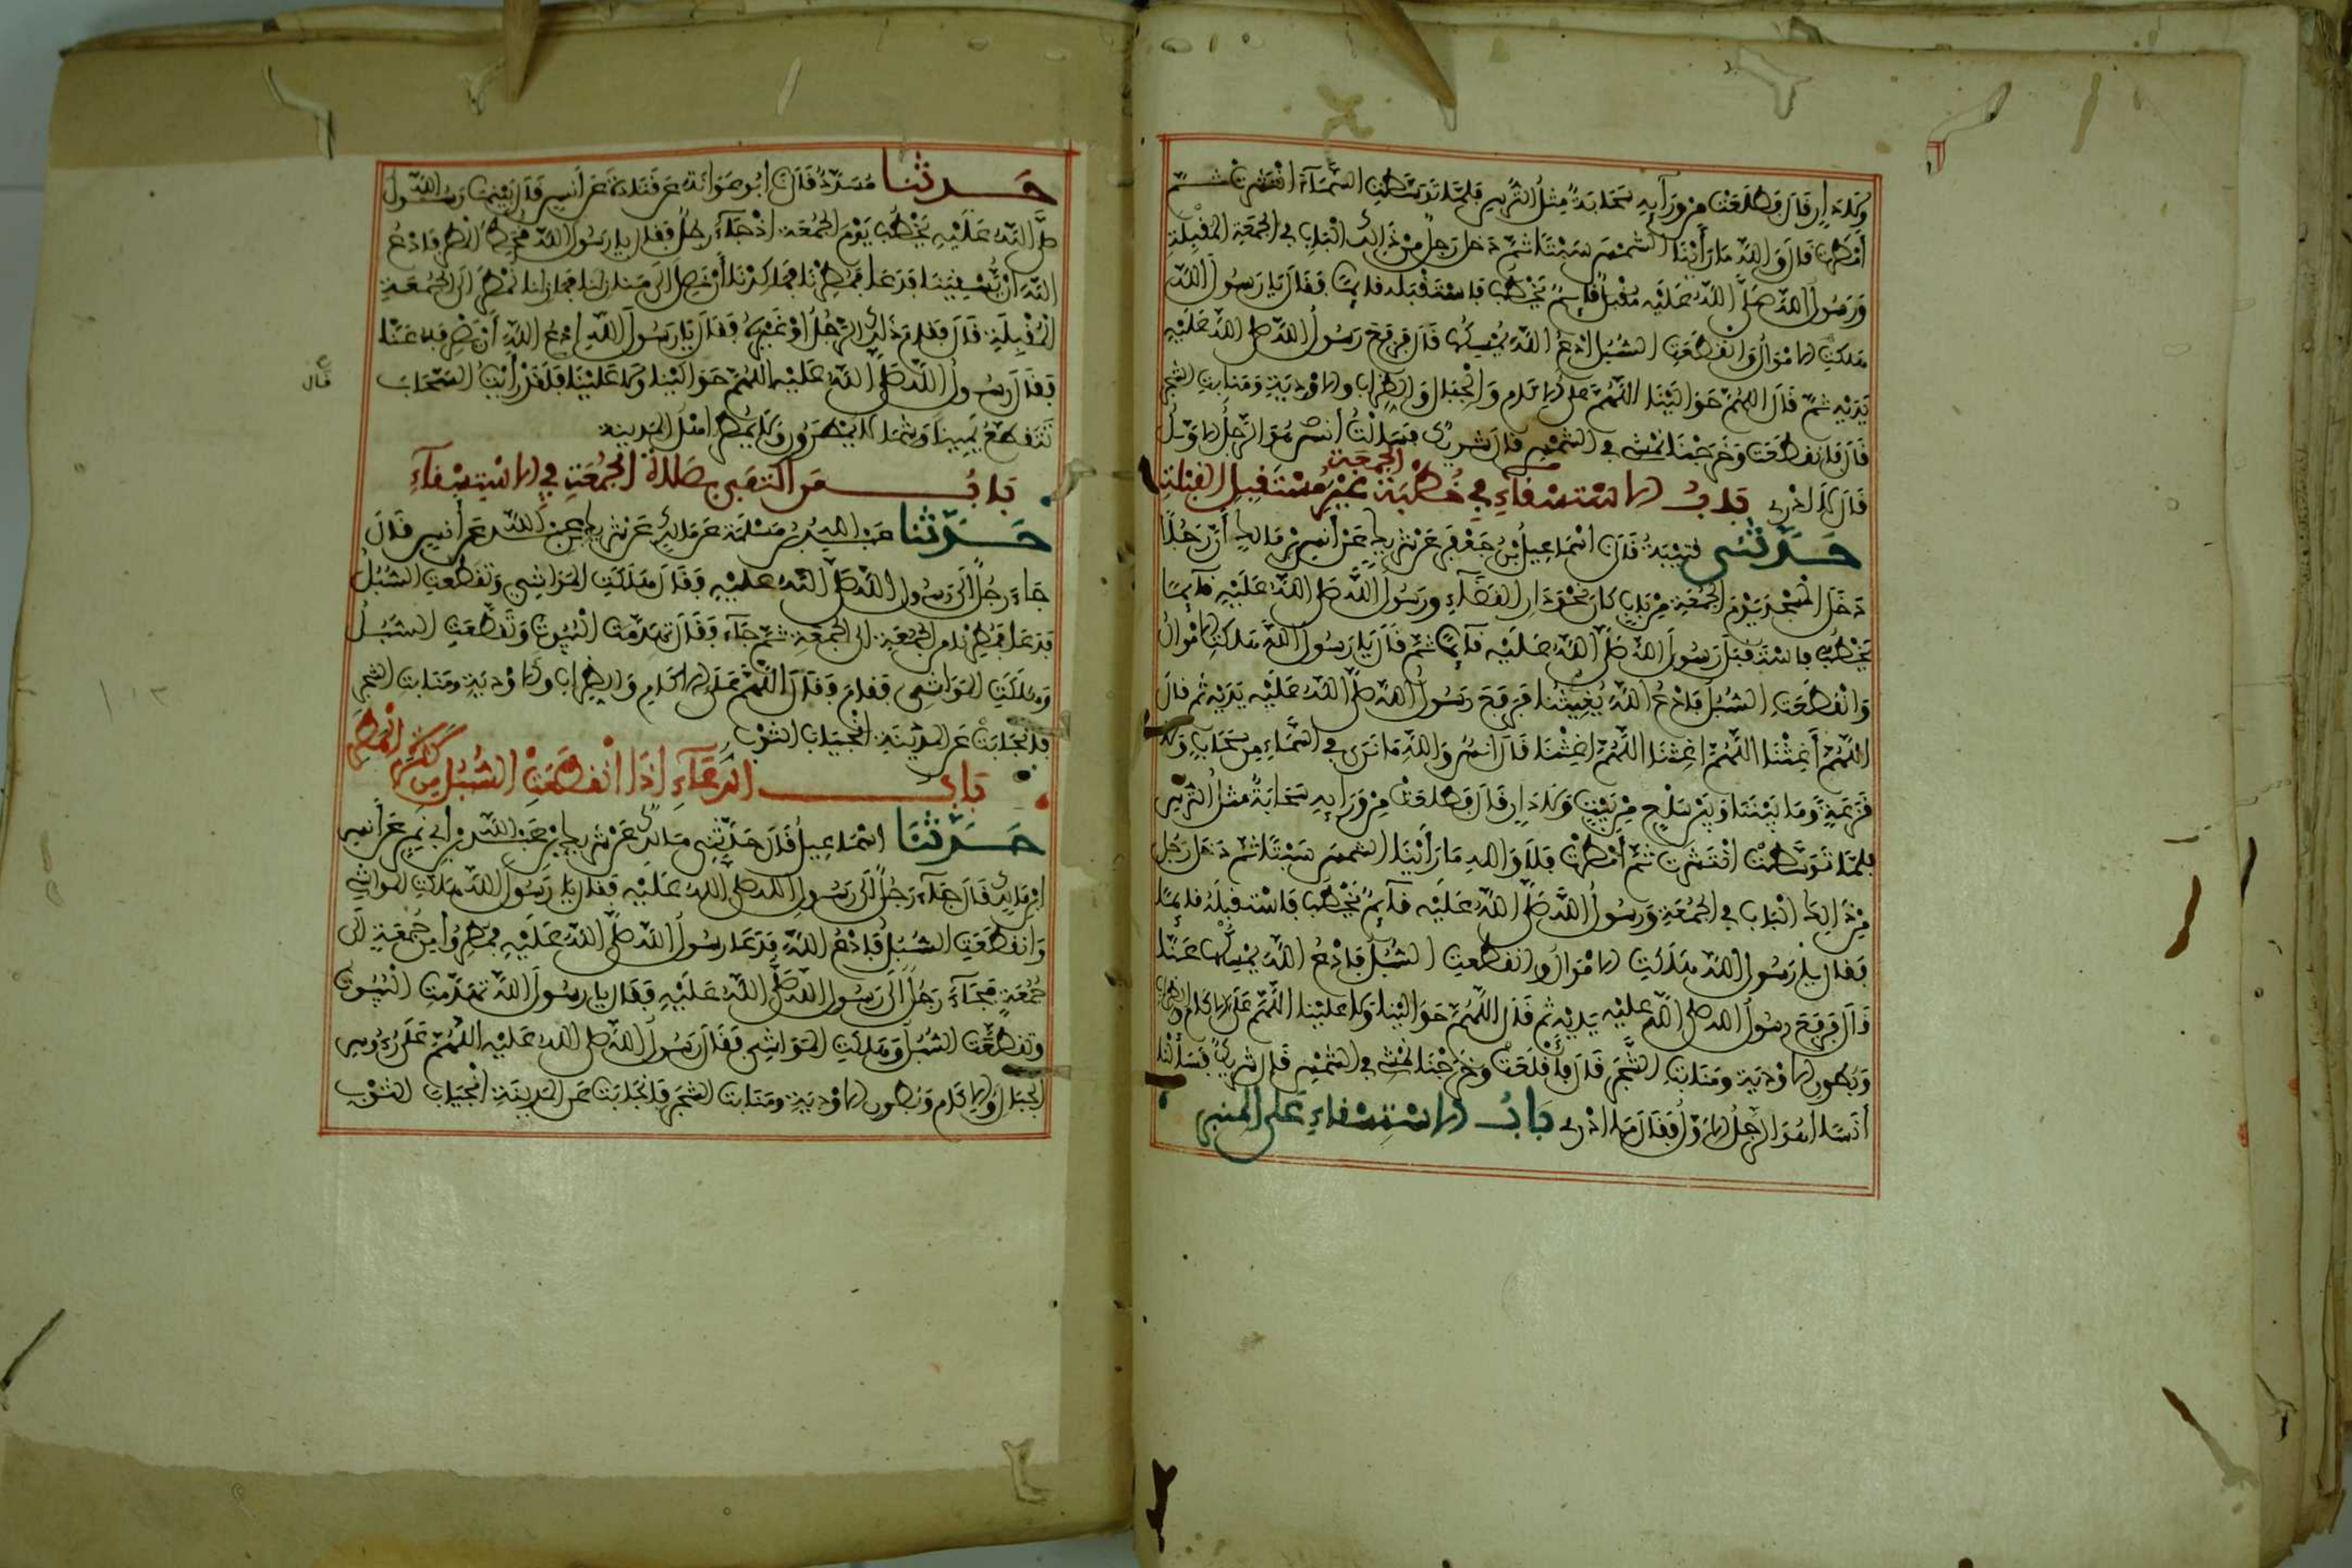 وَلَا دَارٍ قَالَ فَطَلَعَتْ مِنْ وَرَآئِهِ سَحَابَةٌ مِثْلُ التُّرْسِ فَلَمَّا تَوَسَّطَتِ السَّمَآءَ انْتَشَرَتْ ثُمَّ
أَمْطَرَتْ قَالَ وَاللَّهِ مَا رَأَيْنَا الشَّمْسَ سَبْتًا ثُمَّ دَخَلَ رَجُلٌ مِنْ ذَالِكَ الْبَابِ فِي الْجُمُعَةِ الْمُقْبِلَةِ
وَرَسُولُ اللَّهِ صَلَّى اللَّهُ عَلَيْهِ مُقْبِلٌ قَائِمٌ يَخْطُبُ فَاسْتَقْبَلَهُ قَائِمًا فَقَالَ يَا رَسُولَ اللَّهِ
هَلَكَتِ الَامْوَالُ وَانْقَطَعَتِ السُّبُلُ ادْعُ اللَّهَ يُمْسِكْهَا قَالَ فَرَفَعَ رَسُولُ اللَّهِ صَلَّى اللَّهُ عَلَيْهِ
يَدَيْهِ ثُمَّ قَالَ اللَّهُمَّ حَوَالَيْنَا اللَّهُمَّ عَلَى الَاكَامِ وَالْجِبَالِ وَالظِّرَابِ وَالَاوْدِيَةِ وَمَنَابِتِ الشَّجَرِ
قَالَ فَانْقَطَعَتْ وَخَرَجْنَا نَمْشِي فِي الشَّمْسِ قَالَ شَرِيكٌ فَسَأَلْتُ أَنَسًا أَهُوَ الرَّجُلُ الَاوَّلُ
قَالَ لَا أَدْرِي بَابُ الَاسْتِسْقَآءِ فِي خُطْبَةِ الْجُمُعَةِ غَيْرَ مُسْتَقْبِلِ الْقِبْلَةِ
حَدَّثَنِي قُتَيْبَةُ قَالَ نَا اسْمَاعِيلُ بْنُ جَعْفَرٍ عَنْ شَرِيكٍ عَنْ أَنَسِ بْنِ مَالِكٍ أَنَّ رَجُلًا
دَخَلَ الْمَسْجِدَ يَوْمَ الْجُمُعَةِ مِنْ بَابٍ كَانَ نَحْوَ دَارِ الْقَضَآءِ وَرَسُولُ اللَّهِ صَلَّى اللَّهُ عَلَيْهِ قَآئِمًا
يَخْطُبُ فَاسْتَقْبَلَ رَسُولَ اللَّهِ صَلَّى اللَّهُ عَلَيْهِ قَآئِمًا ثُمَّ قَالَ يَا رَسُولَ اللَّهِ هَلَكَتِ الَامْوَالُ
وَانْقَطَعَتِ السُّبُلُ فَادْعُ اللَّهَ يُغِيثُنَا فَرَفَعَ رَسُولُ اللَّهِ صَلَّى اللَّهُ عَلَيْهِ يَدَيْهِ ثُمَّ قَالَ
اللَّهُمَّ أَغِثْنَا اللَّهُمَّ أَغِثْنَا اللَّهُمَّ أَغِثْنَا قَالَ أَنَسٌ وَاللَّهِ مَا نَرَى فِي السَّمَآءِ مِنْ سَحَابٍ وَلَا
قَزَعَةٍ وَمَا بَيْنَنَا وَبَيْنَ سَلْعٍ مِنْ بَيْتٍ وَلَا دَارٍ قَالَ فَطَلَعَتْ مِنْ وَرَائِهِ سَحَابَةٌ مِثْلُ التُّرْسِ
فَلَمَّا تَوَسَّطَتْ انْتَشَرَتْ ثُمَّ أَمْطَرَتْ فَلَا وَاللَّهِ مَا رَأَيْنَا الشَّمْسَ سَبْتًا ثُمَّ دَخَلَ رَجُلٌ
مِنْ ذَالِكَ الْبَابِ فِي الْجُمُعَةِ وَرَسُولُ اللَّهِ صَلَّى اللَّهُ عَلَيْهِ قَآئِمٌ يَخْطُبُ فَاسْتَقْبَلَهُ قَائِمًا
فَقَالَ يَا رَسُولَ اللَّهِ هَلَكَتِ الَامْوَالُ وَانْقَطَعَتِ السُّبُلُ فَادْعُ اللَّهَ يُمْسِكْهَا عَنَّا
قَالَ فَرَفَعَ رَسُولُ اللَّهِ صَلَّى اللَّهُ عَلَيْهِ يَدَيْهِ ثُمَّ قَالَ اللَّهُمَّ حَوَالَيْنَا وَلَا عَلَيْنَا اللَّهُمَّ عَلَى الَاكَامِ وَالظِّرَابِ
وَبُطُونِ الَاوْدِيَةِ وَمَنَابِتِ الشَّجَرِ قَالَ فَأَقْلَعَتْ وَخَرَجْنَا نَمْشِي فِي الشَّمْسِ قَالَ شَرِيكٌ فَسَأَلْنَا
أَنَسًا أَهُوَ الرَّجُلُ الَاوَّلُ فَقَالَ مَا أَدْرِي بَابُ الَاسْتِسْقَاءِ عَلَى الْمِنْبَرِ
حَدَّثَنَا مُسَدَّدٌ قَالَ نَا أَبُو عَوَانَةَ عَنْ قَتَادَةَ عَنْ أَنَسٍ قَالَ بَيْنَمَا رَسُولُ اللَّهِ
صَلَّى اللَّهُ عَلَيْهِ يَخْطُبُ يَوْمَ الْجُمُعَةِ إِذْ جَآءَ رَجُلٌ فَقَالَ يَا رَسُولَ اللَّهِ قُحِطَ الْمَطَرُ فَادْعُ
اللَّهَ أَنْ يَسْقِيَنَا فَدَعَا فَمُطِرْنَا فَمَا كِدْنَا أَنْ نَصِلَ إِلَى مَنَازِلِنَا فَمَا زِلْنَا نُمْطَرُ إِلَى الْجُمُعَةِ
الْمُقْبِلَةِ قَالَ فَقَامَ ذَلِكَ الرَّجُلُ أَوْ غَيْرُهُ فَقَالَ يَا رَسُولَ اللَّهِ ادْعُ اللَّهَ أَنْ يَصْرِفَهُ عَنَّا
فَقَالَ رَسُولُ اللَّهِ صَلَّى اللَّهُ عَلَيْهِ اللَّهُمَّ حَوَالَيْنَا وَلَا عَلَيْنَا فَلَقَدْ رَأَيْتُ السَّحَابَ
قال
تَتَقَطَّعُ يَمِينًا وَشِمَالًا يُمْطَرُونَ وَلَا يُمْطَرُ أَهْلُ الْمَدِينَةِ
بَابُ مَنِ اكْتَفَى بِصَلَاةِ الْجُمُعَةِ فِي الَاسْتِسْقَآءِ
حَدَّثَنَا عَبْدُ اللَّهِ بْنُ مَسْلَمَةَ عَنْ مَالِكٍ عَنْ شَرِيكِ بْنِ عَبْدِ اللَّهِ عَنْ أَنَسٍ قَالَ
جَاءَ رَجُلٌ إِلَى رَسُولِ اللَّهِ صَلَّى اللَّهُ عَلَيْهِ فَقَالَ هَلَكَتِ الْمَوَاشِي وَتَقَطَّعَتِ السُّبُلُ
فَدَعَا فَمُطِرْنَا مِنَ الْجُمُعَةِ إِلَى الْجُمُعَةِ ثُمَّ جَآءَ فَقَالَ تَهَدَّمَتِ الْبُيُوتُ وَتَقَطَّعَتِ السُّبُلُ
وَهَلَكَتِ الْمَوَاشِي فَقَامَ فَقَالَ اللَّهُمَّ عَلَى الَاكَامِ وَالظِّرَابِ وَالَاوْدِيَةِ وَمَنَابِتِ الشَّجَرِ
فَانْجَابَتْ عَنِ الْمَدِينَةِ انْجِيَابَ الثَّوْبِ
بَابُ الدُّعَآءِ إِذَا انْقَطَعَتِ السُّبُلُ مِنْ كَثْرَةِ الْمَطَرِ
حَدَّثَنَا اسْمَاعِيلُ قَالَ حَدَّثَنِي مَالِكٌ عَنْ شَرِيكِ بْنِ عَبْدِ اللَّهِ بْنِ أَبِي نَمِرٍ عَنْ أَنَسِ
ابْنِ مَالِكٍ قَالَ جَآءَ رَجُلٌ إِلَى رَسُولِ اللَّهِ صَلَّى اللَّهُ عَلَيْهِ فَقَالَ يَا رَسُولَ اللَّهِ هَلَكَتِ الْمَوَاشِي
وَانْقَطَعَتِ السُّبُلُ فَادْعُ اللَّهَ فَدَعَا رَسُولُ اللَّهِ صَلَّى اللَّهُ عَلَيْهِ فَمُطِرُوا مِنْ جُمُعَةٍ إِلَى
جُمُعَةٍ فَجَآءَ رَجُلٌ إِلَى رَسُولِ اللَّهِ صَلَّى اللَّهُ عَلَيْهِ فَقَالَ يَا رَسُولَ اللَّهِ تَهَدَّمَتِ الْبُيُوتُ
وَتَقَطَّعَتِ السُّبُلُ وَهَلَكَتِ الْمَوَاشِي فَقَالَ رَسُولُ اللَّهِ صَلَّى اللَّهُ عَلَيْهِ اللَّهُمَّ عَلَى رُءُوسِ
الْجِبَالِ وَالَاكَامِ وَبُطُونِ الَاوْدِيَةِ وَمَنَابِتِ الشَّجَرِ فَانْجَابَتْ عَنِ الْمَدِينَةِ انْجِيَابَ الثَّوْبِ